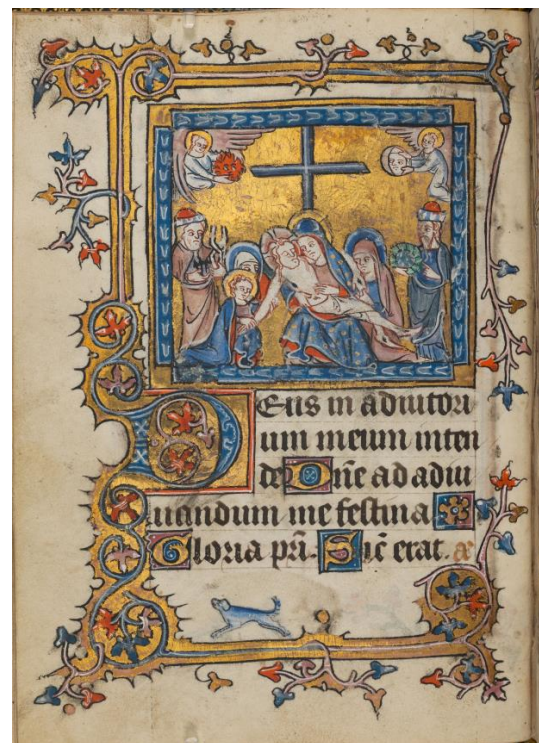 Deus in adiutori
um meum inten
de Dn̄e ad adiu
uandum me festina
Gloria pr̄i. Sic̄ erat. æ